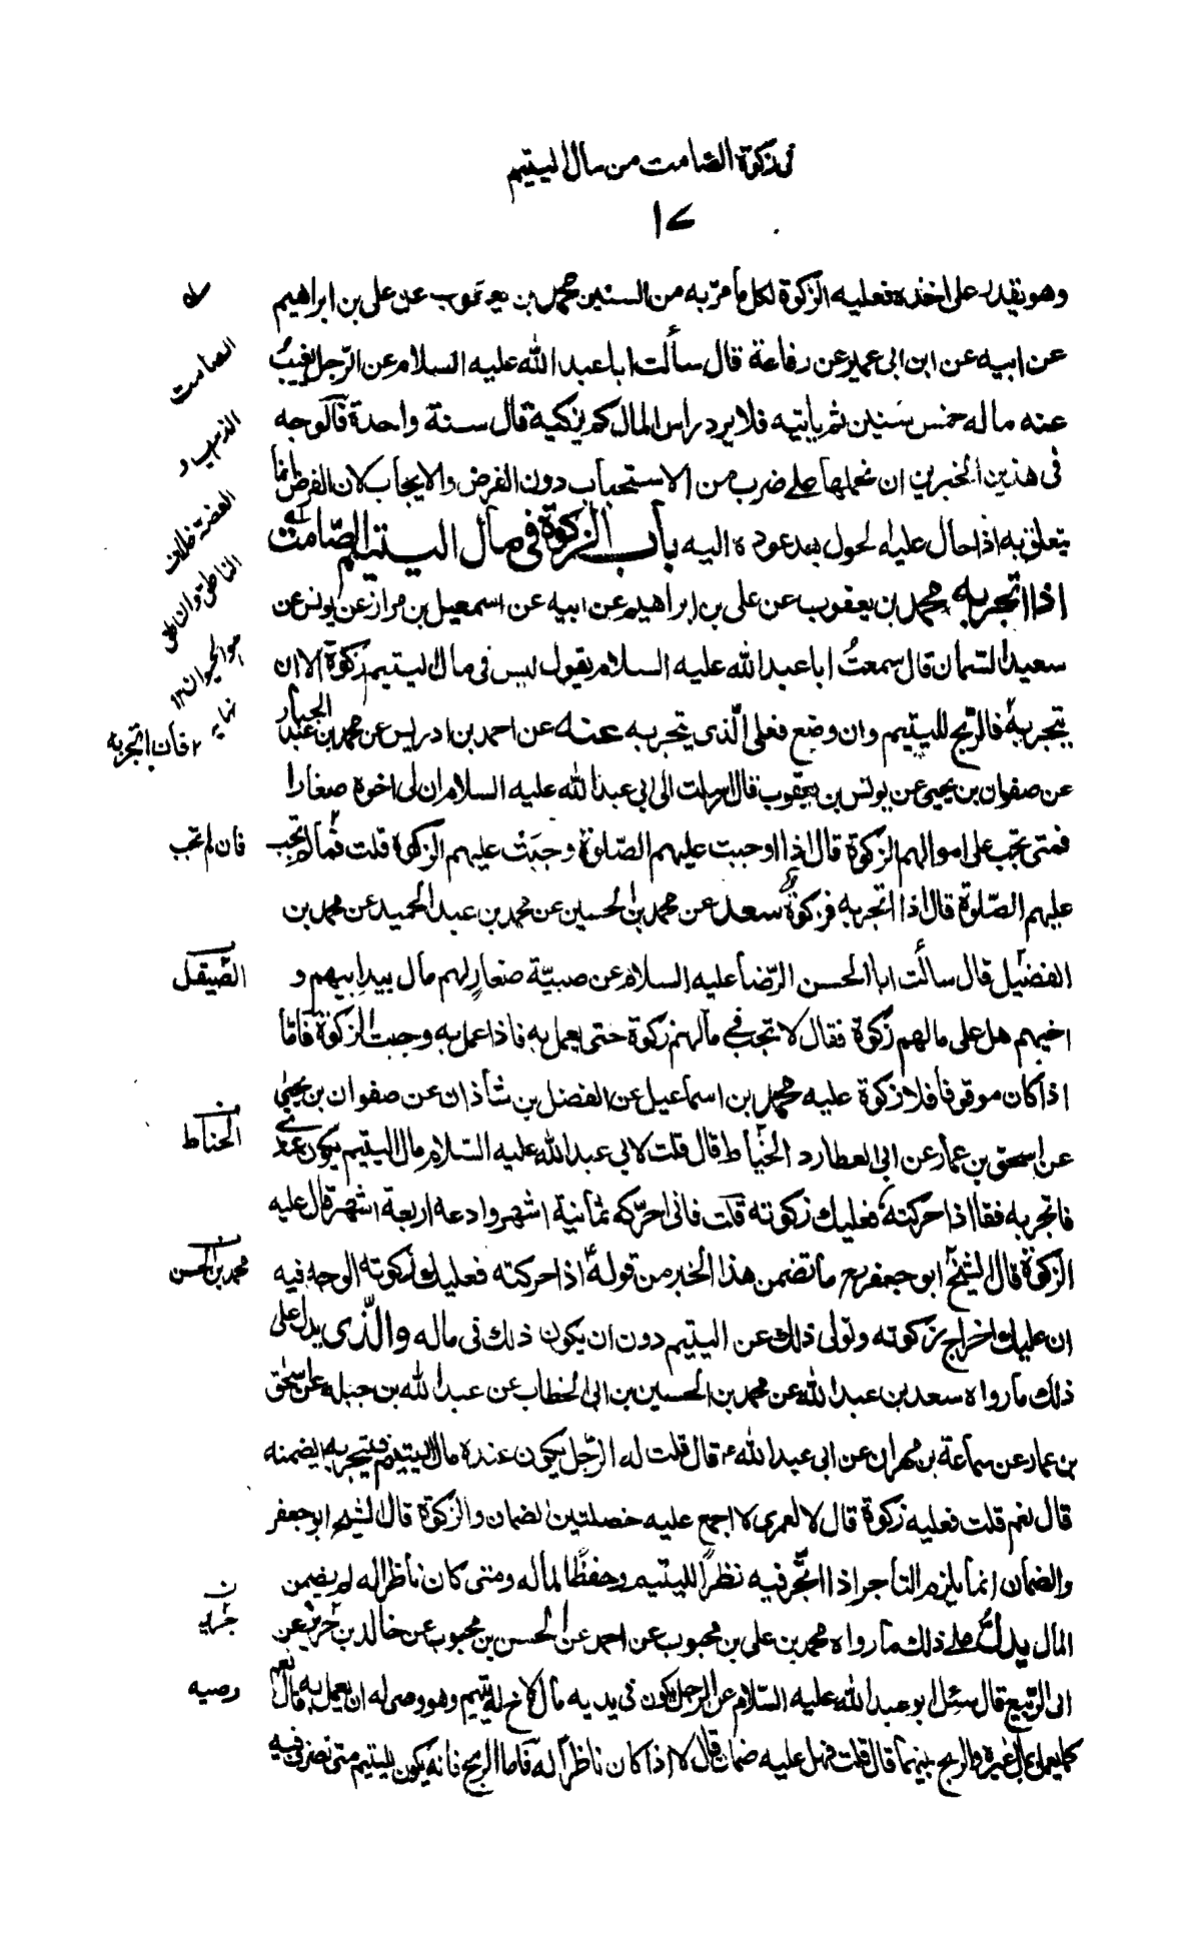 فى زكوة الصّامت من مال اليتيم
١٧
وهو يقدر على اخذه فعليه الزّكوة لكل ما مرّ به من السنين محمد بن يعقوب عن على بن ابراهيم
عن ابيه عن ابن ابى عمير عن رفاعة قال سألت ابا عبد الله عليه السلام عن الرّجل يغيبُ
عنه ماله خمس سنين ثم ياتيه فلا يرد راس المال كم يزكيه قال سنة واحدة فالوجه
فى هذين الخبرين ان نحملها على ضرب من الاستحباب دون الفرض والايجاب لان الفرض انما
يتعلق به اذا حال عليه الحول بعد عوده اليه باب الزكوة فى مال اليتيم الصّامت
اذا اتجر به محمد بن يعقوب عن على بن ابراهيم عن ابيه عن اسمعيل بن مرار عن يونس عن
سعيد السّمان قال سمعتُ ابا عبد الله عليه السلام يقول ليس فى مال اليتيم زكوة الا ان
يتجر به فالرّبح لليتيم وان وضع فعلى الّذى يتجر به عنه عن احمد بن ادريس عن محمد بن عبد الجبار
عن صفوان بن يحيى عن يونس بن يعقوب قال ارسلت الى ابى عبد الله عليه السلام ان لى اخوة صغارا
فمتى تجب على اموالهم الزكوة قال اذا وجبت عليهم الصّلوة وجبَتْ عليهم الزكوة قلت فما لم تجب
عليهم الصّلوة قال اذا اتجر به فزكوة سعد عن محمد بن الحسين عن محمد بن عبد الحميد عن محمد بن
الفضيل قال سالت ابا الحسن الرّضا عليه السلام عن صبيّة صغارٍ لهم مال بيد ابيهم و
اخيهم هل على مالهم زكوة فقال لا تجب فى مالهم زكوة حتى يعمل به فاذا عمل به وجبت الزكوة فامّا
اذا كان موقوفا فلا زكوة عليه محمد بن اسماعيل عن الفضل بن شاذان عن صفوان بن يحيى
عن اسحق بن عمار عن ابى العطارد الخيّاط قال قلت لابى عبد الله عليه السّلام مال اليتيم يكون عندى
فاتجر به فقا اذا حركته فعليك زكوته قلت فانى احرّكه ثمانية اشهر وادعه اربعة اشهر قال عليه
الزكوة قال الشيخ ابو جعفر ره ما تضمن هذا الخبر من قوله اذا حركته فعليك زكوته الوجه فيه
ان عليك اخراج زكوته وتولى ذلك عن اليتيم دون ان يكون ذلك فى ماله والّذى يدل على
ذلك ما رواه سعد بن عبد الله عن محمد بن الحسين بن ابى الخطاب عن عبد الله بن جبلة عن اسحق
بن عمار عن سماعة بن مهران عن ابى عبد الله ع قال قلت له الرّجل يكون عنده مال اليتيم فيتجر به ايضمنه
قال نعم قلت فعليه زكوة قال لا لعمرى لا اجمع عليه خصلتين الضمان والزكوة قال الشيخ ابو جعفر
والضمان انما يلزم التاجر اذا اتّجر فيه نظراً لليتيم وحفظًا لماله ومتى كان ناظرا له لم يضمن
المال يدلّ على ذلك ما رواه محمد بن على بن محبوب عن احمد عن الحسن بن محبوب عن خالد بن جرير عن
ابى الرّبيع قال سئل ابو عبد الله عليه السّلام عن الرجل يكون فى يديه مال لاخ له يتيم وهو وصى له ان يعمل به قال نعم
كما يعمل بمال غيره والربح بينهما قال قلت فهل عليه ضمان قال لا اذا كان ناظراً له فاما الربح فانه يكون لليتيم متى تصرف فيه
الصامت
الذهب و
الفضة خلاف
الناطق وان
هو الحيوان ١٢
نهايه
٢ فان اتجر به
فان لم تجب
الصّيقل
الحناط
محمد بن الحسن
وصيه